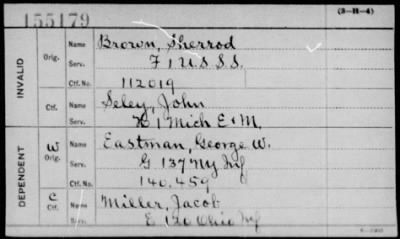 155179
(3-H-4)
INVALID
Orig.
Name Brown, Sherrod
Serv. F 1 U S S S.
Ctf. No. 112019
Ctf.
Name Seley, John
Serv. H 1 Mich E & M.
DEPENDENT
W
Orig.
Name Eastman, George W.
Serv. G 137 NY Inf
Ctf. No. 140,459
C
Ctf.
Name Miller, Jacob
Serv. E 120 Ohio Inf